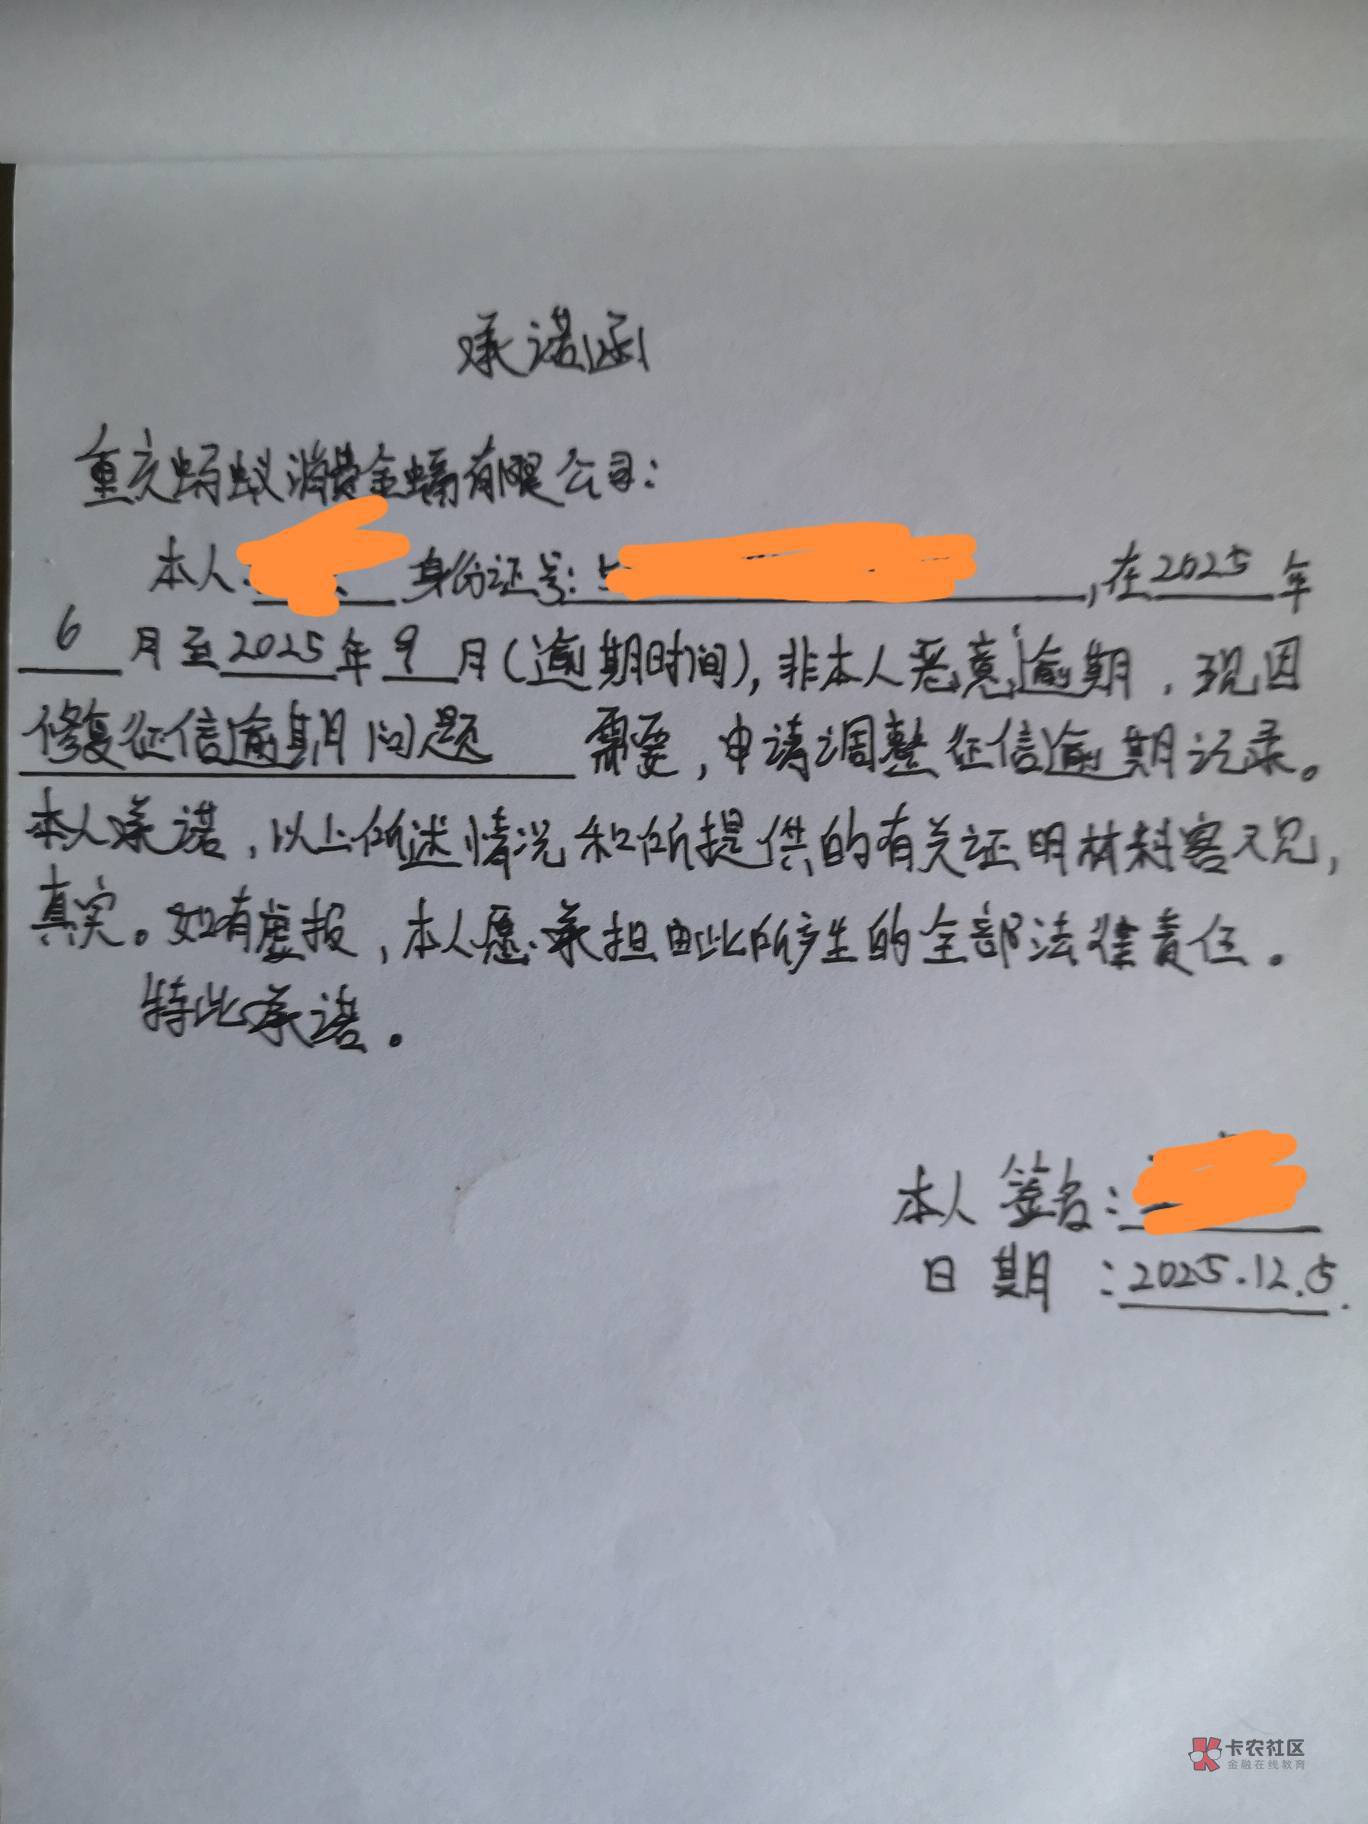 承诺函
重庆蚂蚁消费金融有限公司：
本人： 身份证号：5 ，在2025年
6月至2025年9月（逾期时间），非本人恶意逾期，现因
修复征信逾期问题 需要，申请调整征信逾期记录。
本人承诺，以上所述情况和所提供的有关证明材料客观，
真实。如有虚报，本人愿承担由此所产生的全部法律责任。
特此承诺。
本人签名：
日期：2025.12.5.
卡农社区
金融在线教育